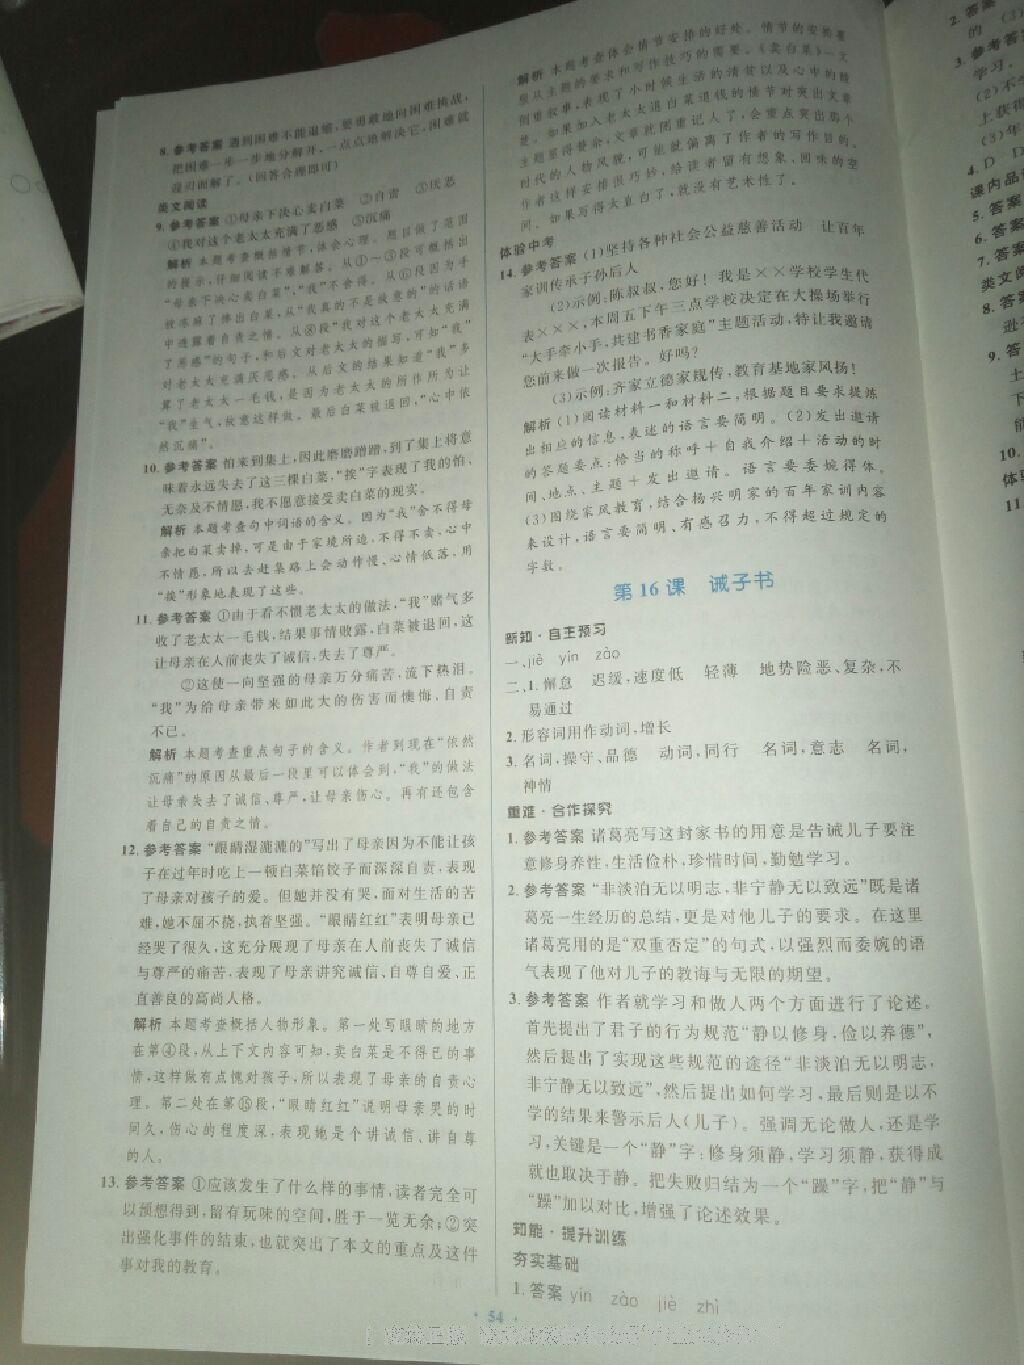 8. 参考答案 遇到困难不能退缩,要勇敢地向困难挑战,
把困难一步一步地分解开,一点点地解决它,困难就
迎刃而解了。(回答合理即可)
类文阅读
9. 参考答案 ①母亲下决心卖白菜 ②自责 ③厌恶
④我对这个老太太充满了恶感 ⑤沉痛
解析 本题考查概括情节,体会心理。题目做了范围
的提示,仔细阅读不难解答。从①~③段可概括出
“母亲下决心卖白菜”,“我”不舍得。从⑥段因为手
被冻麻了摔出白菜,从“我真的不是故意的”的话语
中透露着自责之情。从⑧段“我对这个老太太充满
了恶感”的句子,和后文对老太太的描写,可知“我”
对老太太充满厌恶感。从后文的结果知道“我”多
算了老太太一毛钱,是因为老太太的所作所为让
“我”生气,故意这样做。最后白菜被退回,“心中依
然沉痛”。
10. 参考答案 怕来到集上,因此磨磨蹭蹭,到了集上将意
味着永远失去了这三棵白菜,“挨”字表现了我的怕、
无奈及不情愿,我不愿意接受卖白菜的现实。
解析 本题考查句中词语的含义。因为“我”舍不得母
亲把白菜卖掉,可是由于家境所迫,不得不卖,心中
不情愿,所以去赶集路上会动作慢、心情低落,用
“挨”形象地表现了这些。
11. 参考答案 ①由于看不惯老太太的做法,“我”赌气多
收了老太太一毛钱,结果事情败露,白菜被退回,这
让母亲在人前丧失了诚信,失去了尊严。
②这使一向坚强的母亲万分痛苦,流下热泪。
“我”为给母亲带来如此大的伤害而懊悔、自责
不已。
解析 本题考查重点句子的含义。作者到现在“依然
沉痛”的原因从最后一段里可以体会到,“我”的做法
让母亲失去了诚信、尊严,让母亲伤心。再有还包含
着自己的自责之情。
12. 参考答案 “眼睛湿漉漉的”写出了母亲因为不能让孩
子在过年时吃上一顿白菜馅饺子而深深自责,表现
了母亲对孩子的爱。但她并没有哭,面对生活的苦
难,她不屈不挠,执着坚强。“眼睛红红”表明母亲已
经哭了很久,这充分展现了母亲在人前丧失了诚信
与尊严的痛苦,表现了母亲讲究诚信、自尊自爱、正
直善良的高尚人格。
解析 本题考查概括人物形象。第一处写眼睛的地方
在第④段,从上下文内容可知,卖白菜是不得已的事
情,这样做有点愧对孩子,所以表现了母亲的自责心
理。第二处在第⑮段,“眼睛红红”说明母亲哭的时
间久,伤心的程度深,表现她是个讲诚信、讲自尊
的人。
13. 参考答案 ①应该发生了什么样的事情,读者完全可
以预想得到,留有玩味的空间,胜于一览无余;②突
出强化事件的结束,也就突出了本文的重点及这件
事对我的教育。
解析 本题考查体会情节安排的好处。情节的安排要
服从主题的要求和写作技巧的需要。《卖白菜》一文
侧重叙事,表现了小时候生活的清贫以及心中的酸
楚。如果加入老太太退白菜退钱的情节对突出文章
主题显得整余,文章就侧重记人了,会重点突出那个
时代的人物风貌,可能就偏离了作者的写作目的。
作者这样安排很巧妙,给读者留有想象、回味的空
间。如果写得太直白了,就没有艺术性了。
体验中考
14. 参考答案 (1)坚持各种社会公益慈善活动 让百年
家训传承子孙后人
(2)示例:陈叔叔,您好!我是××学校学生代
表×××,本周五下午三点学校决定在大操场举行
“大手牵小手,共建书香家庭”主题活动,特让我邀请
您前来做一次报告。好吗?
(3)示例:齐家立德家规传,教育基地家风扬!
解析 (1)阅读材料一和材料二,根据题目要求提炼
出相应的信息,表述的语言要简明。(2)发出邀请
的答题要点:恰当的称呼+自我介绍+活动的时
间、地点、主题+发出邀请。语言要委婉得体。
(3)围绕家风教育,结合杨兴明家的百年家训内容
来设计,语言要简明、有感召力,不得超过规定的
字数。
第16课 诫子书
新知·自主预习
一、jiè yín zào
二、1. 懈怠 迟缓,速度低 轻薄 地势险恶、复杂,不
易通过
2. 形容词用作动词,增长
3. 名词,操守、品德 动词,同行 名词,意志 名词,
神情
重难·合作探究
1. 参考答案 诸葛亮写这封家书的用意是告诫儿子要注
意修身养性,生活俭朴,珍惜时间,勤勉学习。
2. 参考答案 “非淡泊无以明志,非宁静无以致远”既是诸
葛亮一生经历的总结,更是对他儿子的要求。在这里
诸葛亮用的是“双重否定”的句式,以强烈而委婉的语
气表现了他对儿子的教诲与无限的期望。
3. 参考答案 作者就学习和做人两个方面进行了论述。
首先提出了君子的行为规范“静以修身,俭以养德”,
然后提出了实现这些规范的途径“非淡泊无以明志,
非宁静无以致远”,然后提出如何学习,最后则是以不
学的结果来警示后人(儿子)。强调无论做人,还是学
习,关键是一个“静”字:修身须静,学习须静,获得成
就也取决于静。把失败归结为一个“躁”字,把“静”与
“躁”加以对比,增强了论述效果。
知能·提升训练
夯实基础
1. 答案 yín zào jiè zhì
· 54 ·
2. 答案
的 (3)
3. 参考答案
学习。
(2)不
上获得
(3)年
4. D D
课内品读
5. 答案
6. 答案
7. 答案
类文阅
8. 答案
逊
9. 答
土
下
能
10.
体验
11